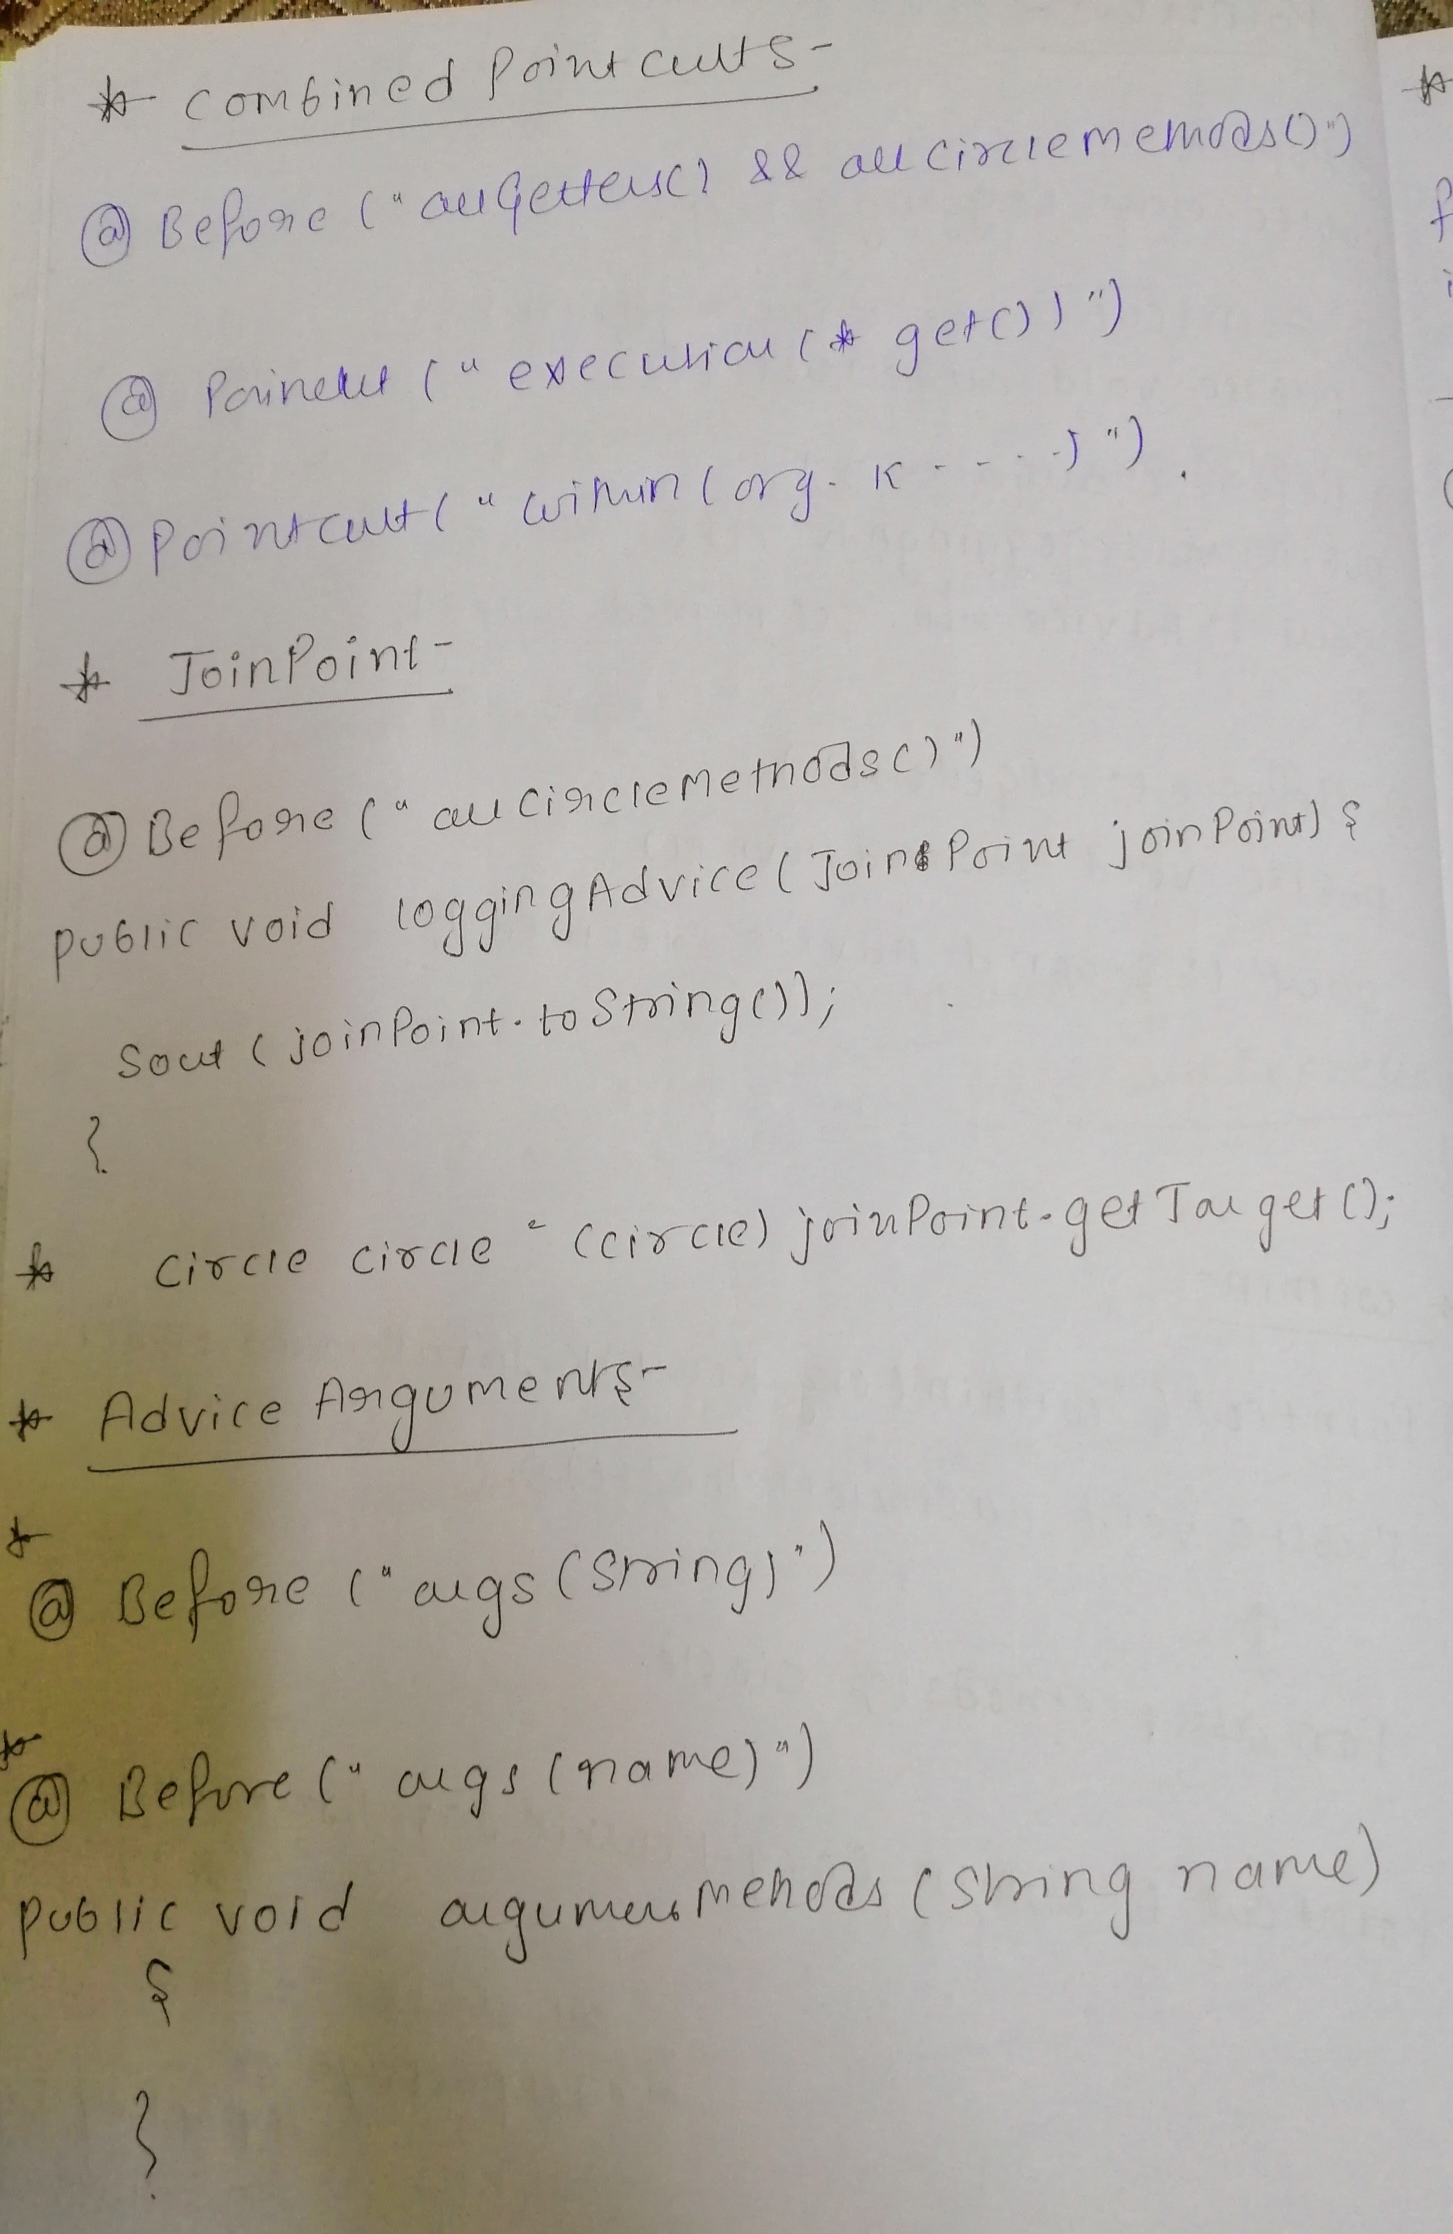 * Combined Pointcuts-
@Before ("allGetters() && allCircleMethods()")
@Pointcut ("execution (* get())")
@Pointcut ("within (org. K - - - -)").
* JoinPoint-
@Before ("allCircleMethods()")
public void loggingAdvice (JoinPoint joinPoint) {
Sout (joinPoint.toString());
}
* Circle circle = (Circle) joinPoint.getTarget();
* Advice Arguments-
*
@Before ("args (String)")
*
@Before ("args (name)")
public void argumentMethods (String name)
{
}